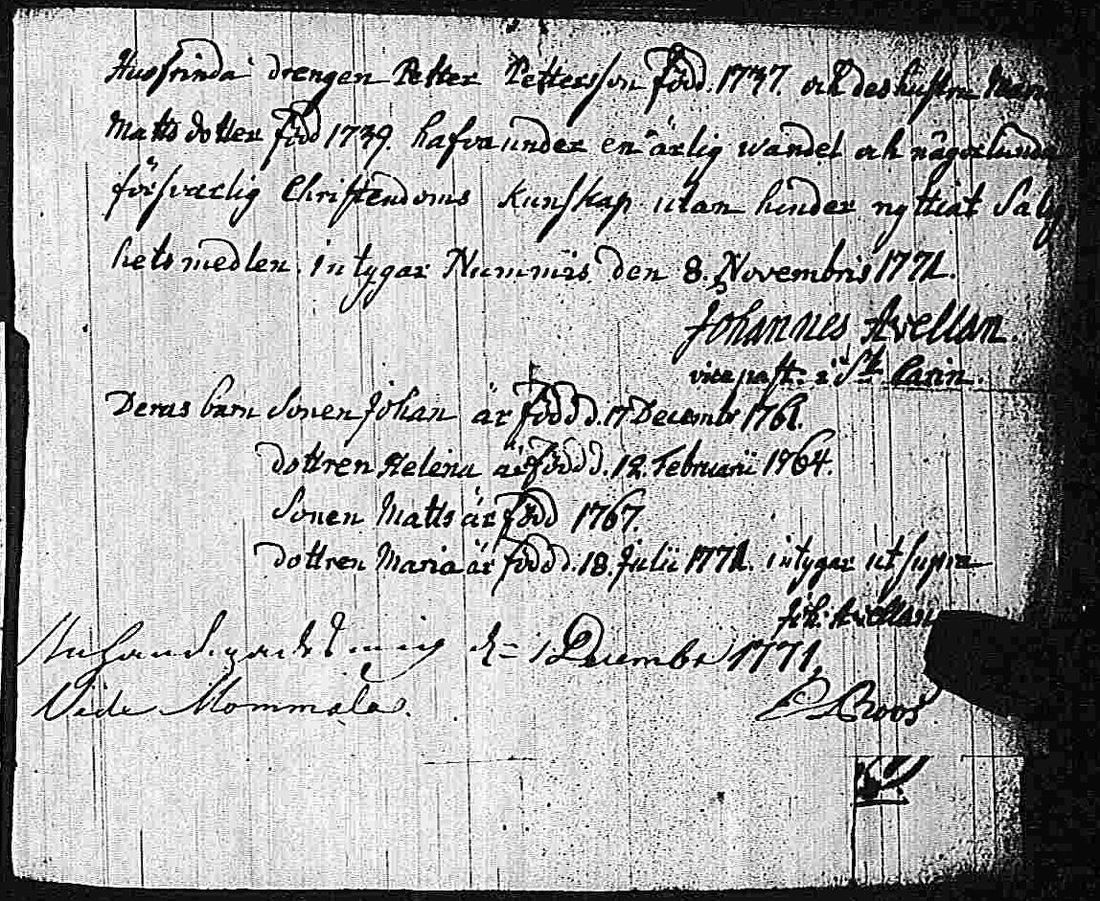 Husfrinda drengen Petter Pettersson född 1737. och des hustru Maria
Matts dotter född 1739. hafva under en ärlig wandel och någorlunda
försvarlig Christendoms kunskap utan hinder nyttiat Salig
hets medlen. intygar Nummis den 8. Novembris 1771.
Johannes Avellan.
vice past. i St. Carin.
Deras barn Sonen Johan är född d. 17 Decembr 1761.
dottren Helena är född d. 12. Februarii 1764.
Sonen Matts är född 1767.
dottren Maria är född d. 18. Julii 1771. intygar ut supra
Joh: Avellan
mig d. 1 Decembr 1771.
Vide Mommala.